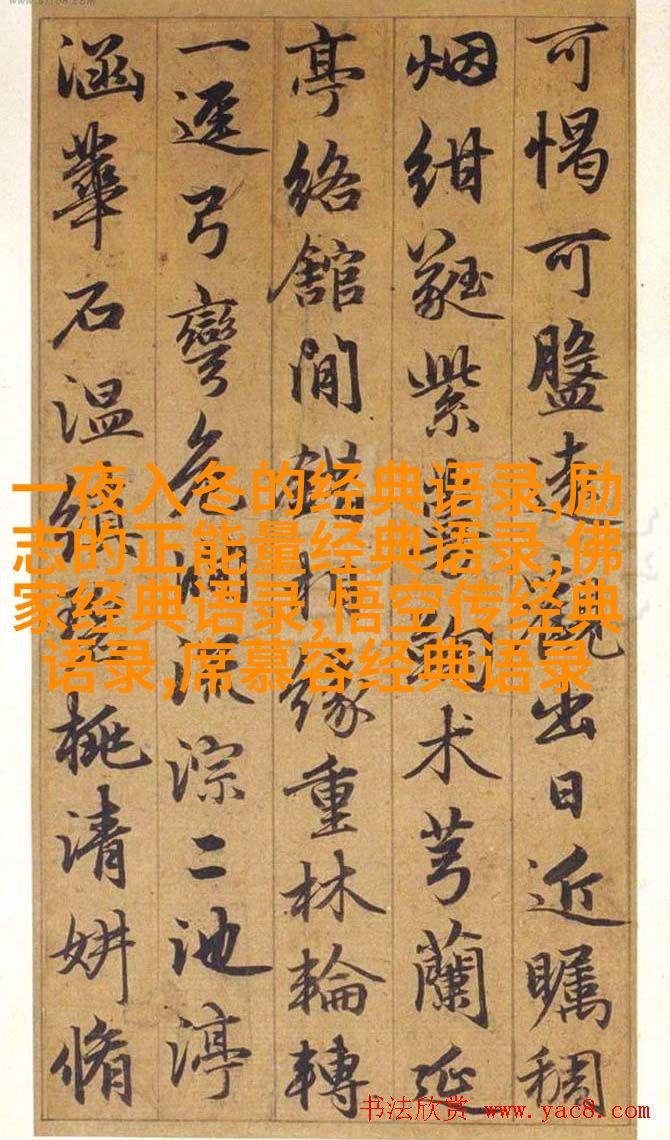 可愒可遠觀出日近矚稠
烟紺蕤紫术芎蘭延
亭絡館閒緣重林輪轉
一逕弓彎危流淙二池渟
涵華石温桃清妍脩
一夜入冬的经典语录,励
志的正能量经典语录,佛
家经典语录,悟空传经典
语录,席慕容经典语录
书法欣赏 www.yac8.com